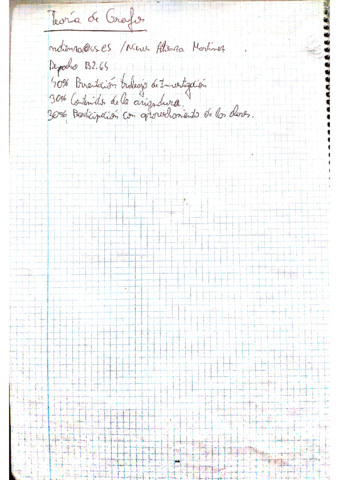 Teoría de Grafos
@us.es / Nieves Atienza Martínez
Despacho B2.65
40% Presentación trabajo de Investigación
30% Contenidos de la asignatura.
30% Participación con aprovechamiento de las clases.